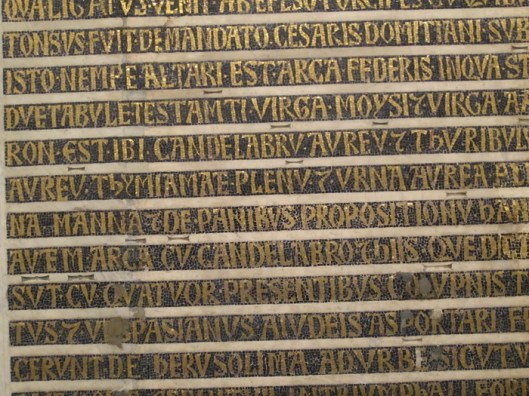 TONSVS FVIT DE MANDATO CESARIS DOMITIANI SVB
ISTO NEMPE ALTARI EST ARCA FEDERIS INQVA ST
DVE TABVLE TESTAMTI VIRGA MOYSI ⁊ VIRGA A
RON EST IBI CANDELABRV AVREV ⁊ THVRIBVL
AVREV THYMIAMAE PLENV ⁊ VRNA AVREA PLE
NA MANNA ⁊ DE PANIBVS PROPOSITIONV HANC
AVTEM ARCA CV CANDELABRO ⁊ HIS QVE
SVT CV QVATVOR PRESENTIBVS COLVPNIS
TVS ⁊ VESPASIANVS A IVDEIS ASPORTARI
CERVNT DE HIERVSOLIMA AD VRBE SICVT